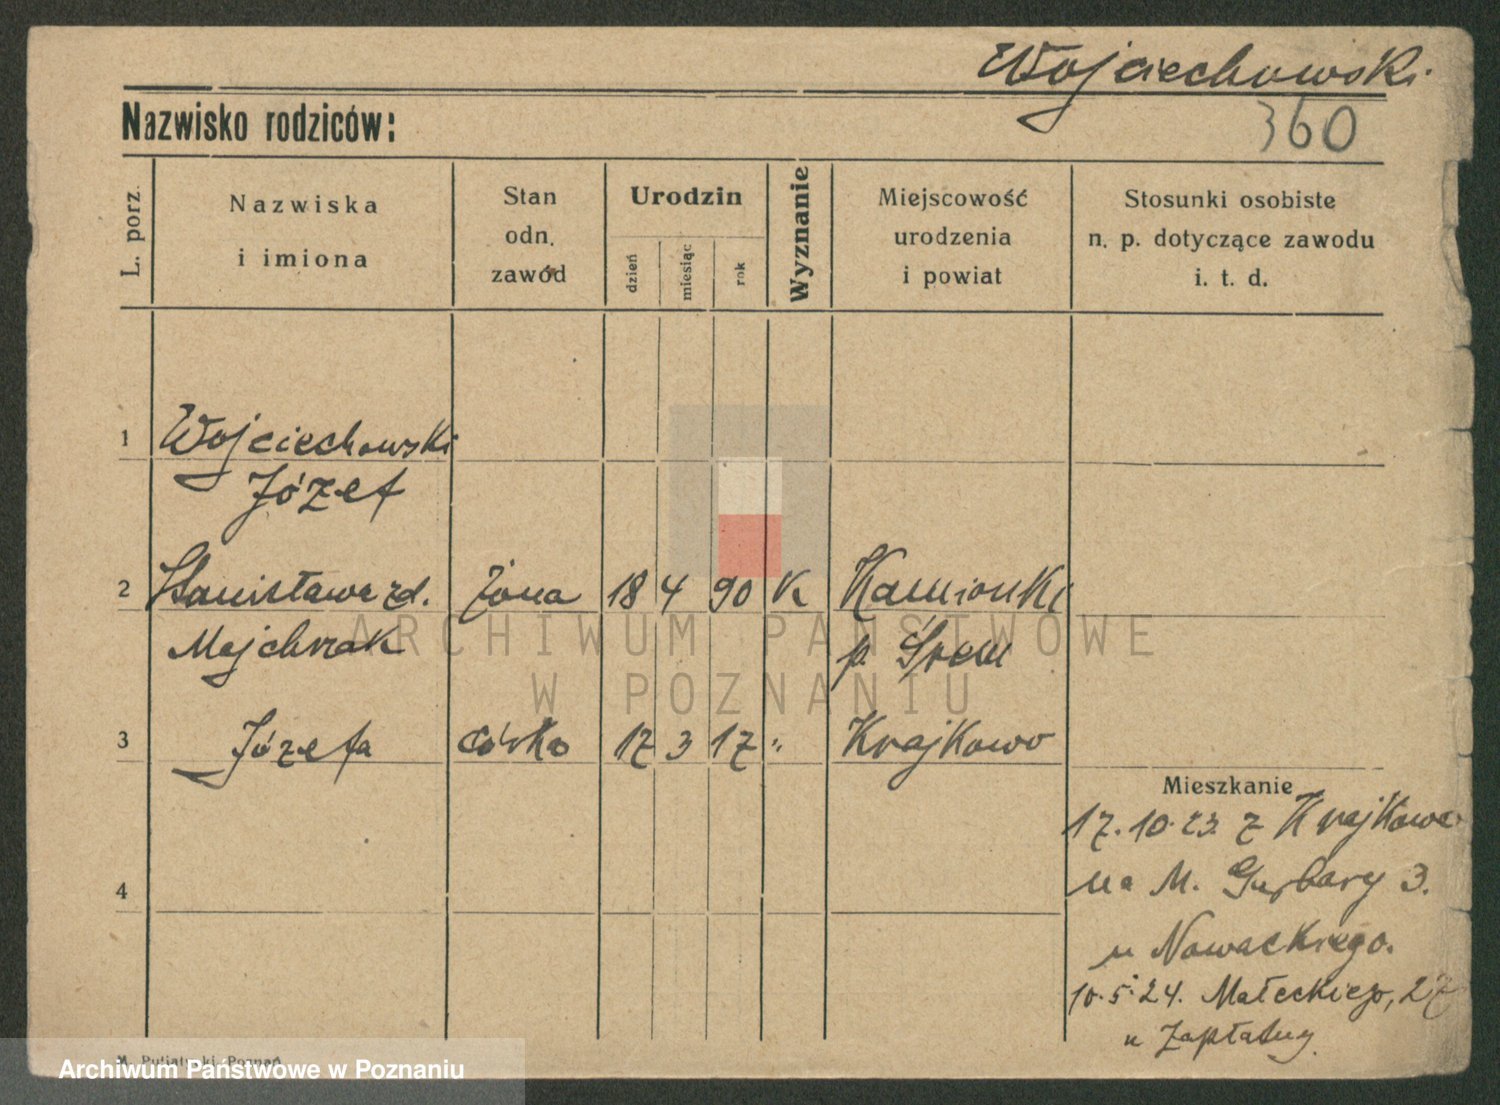 Wojciechowski
Nazwisko rodziców:
360
L. porz.
Nazwiska
i imiona
Stan
odn.
zawód
Urodzin
dzień
miesiąc
rok
Wyznanie
Miejscowość
urodzenia
i powiat
Stosunki osobiste
n. p. dotyczące zawodu
i. t. d.
1 Wojciechowski
Józef
2 Stanisława zd. żona 18 4 90 K Kamionki
Majchrzak p. Śrem
ARCHIWUM PAŃSTWOWE
W POZNANIU
3 Józefa córka 17 3 17 " Krajkowo
Mieszkanie
17.10.23. z Krajkowa
na M. Garbary 3.
u Nowackiego.
4
10.5.24. Małeckiego, 27
u
M. Putiatycki, Poznań
Archiwum Państwowe w Poznaniu